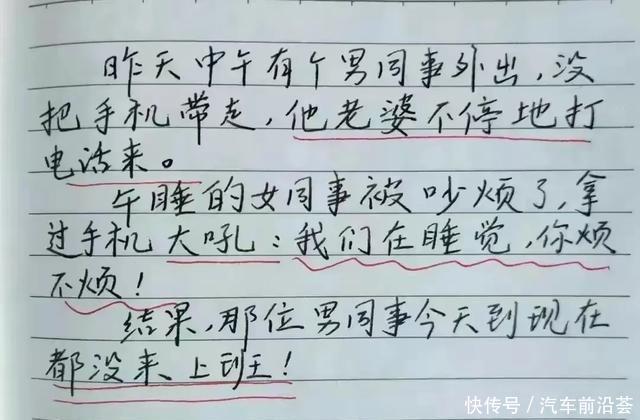 昨天中午有个男同事外出,没
把手机带走,他老婆不停地打
电话来。
午睡的女同事被吵烦了,拿
过手机大吼:我们在睡觉,你烦
不烦!
结果,那位男同事今天到现在
都没来上班!
快传号/汽车前沿荟